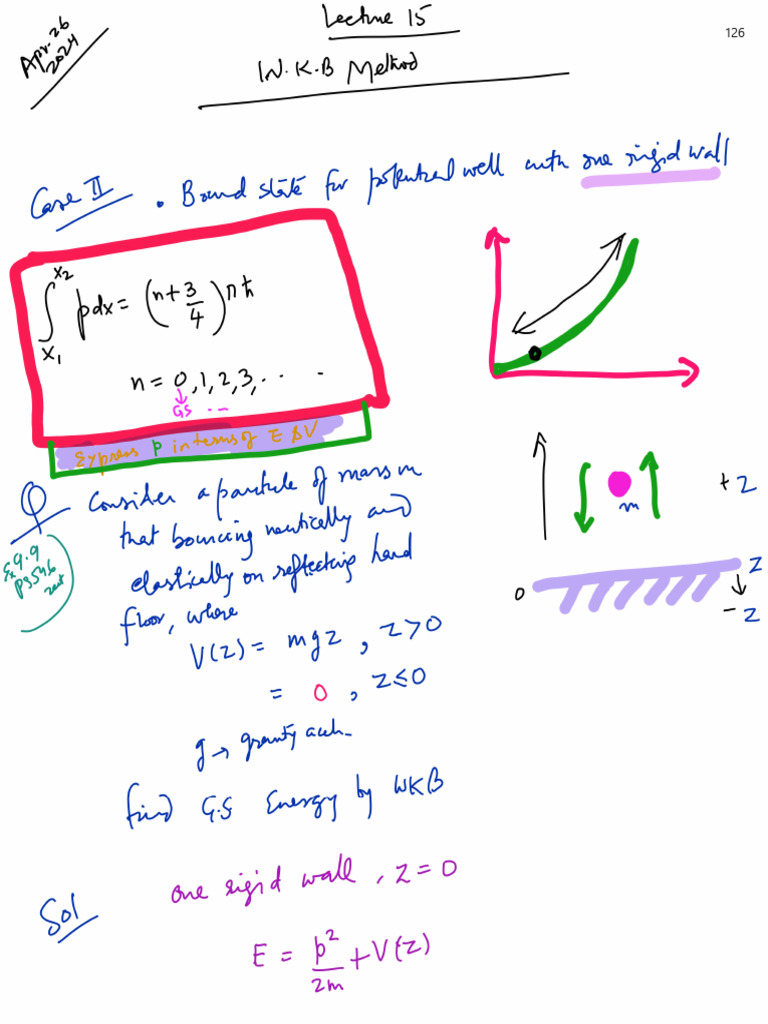 Apr. 26
2024
Lecture 15
126
W.K.B Method
Case II . Bound state for potential well with one rigid wall
∫ₓ₁ˣ² pdx = (n + 3/4) πħ
n = 0, 1, 2, 3, . . .
GS ...
Express p in terms of E & V
Q Consider a particle of mass m
that bouncing vertically and
elastically on reflecting hard
floor, where
Ex 9.9
Pg 546
zett
V(z) = mgz , z > 0
= 0 , z ≤ 0
g → gravity acch.
find G.S Energy by WKB
m
+ z
0
z
- z
Sol
one rigid wall , z = 0
E = p²/2m + V(z)